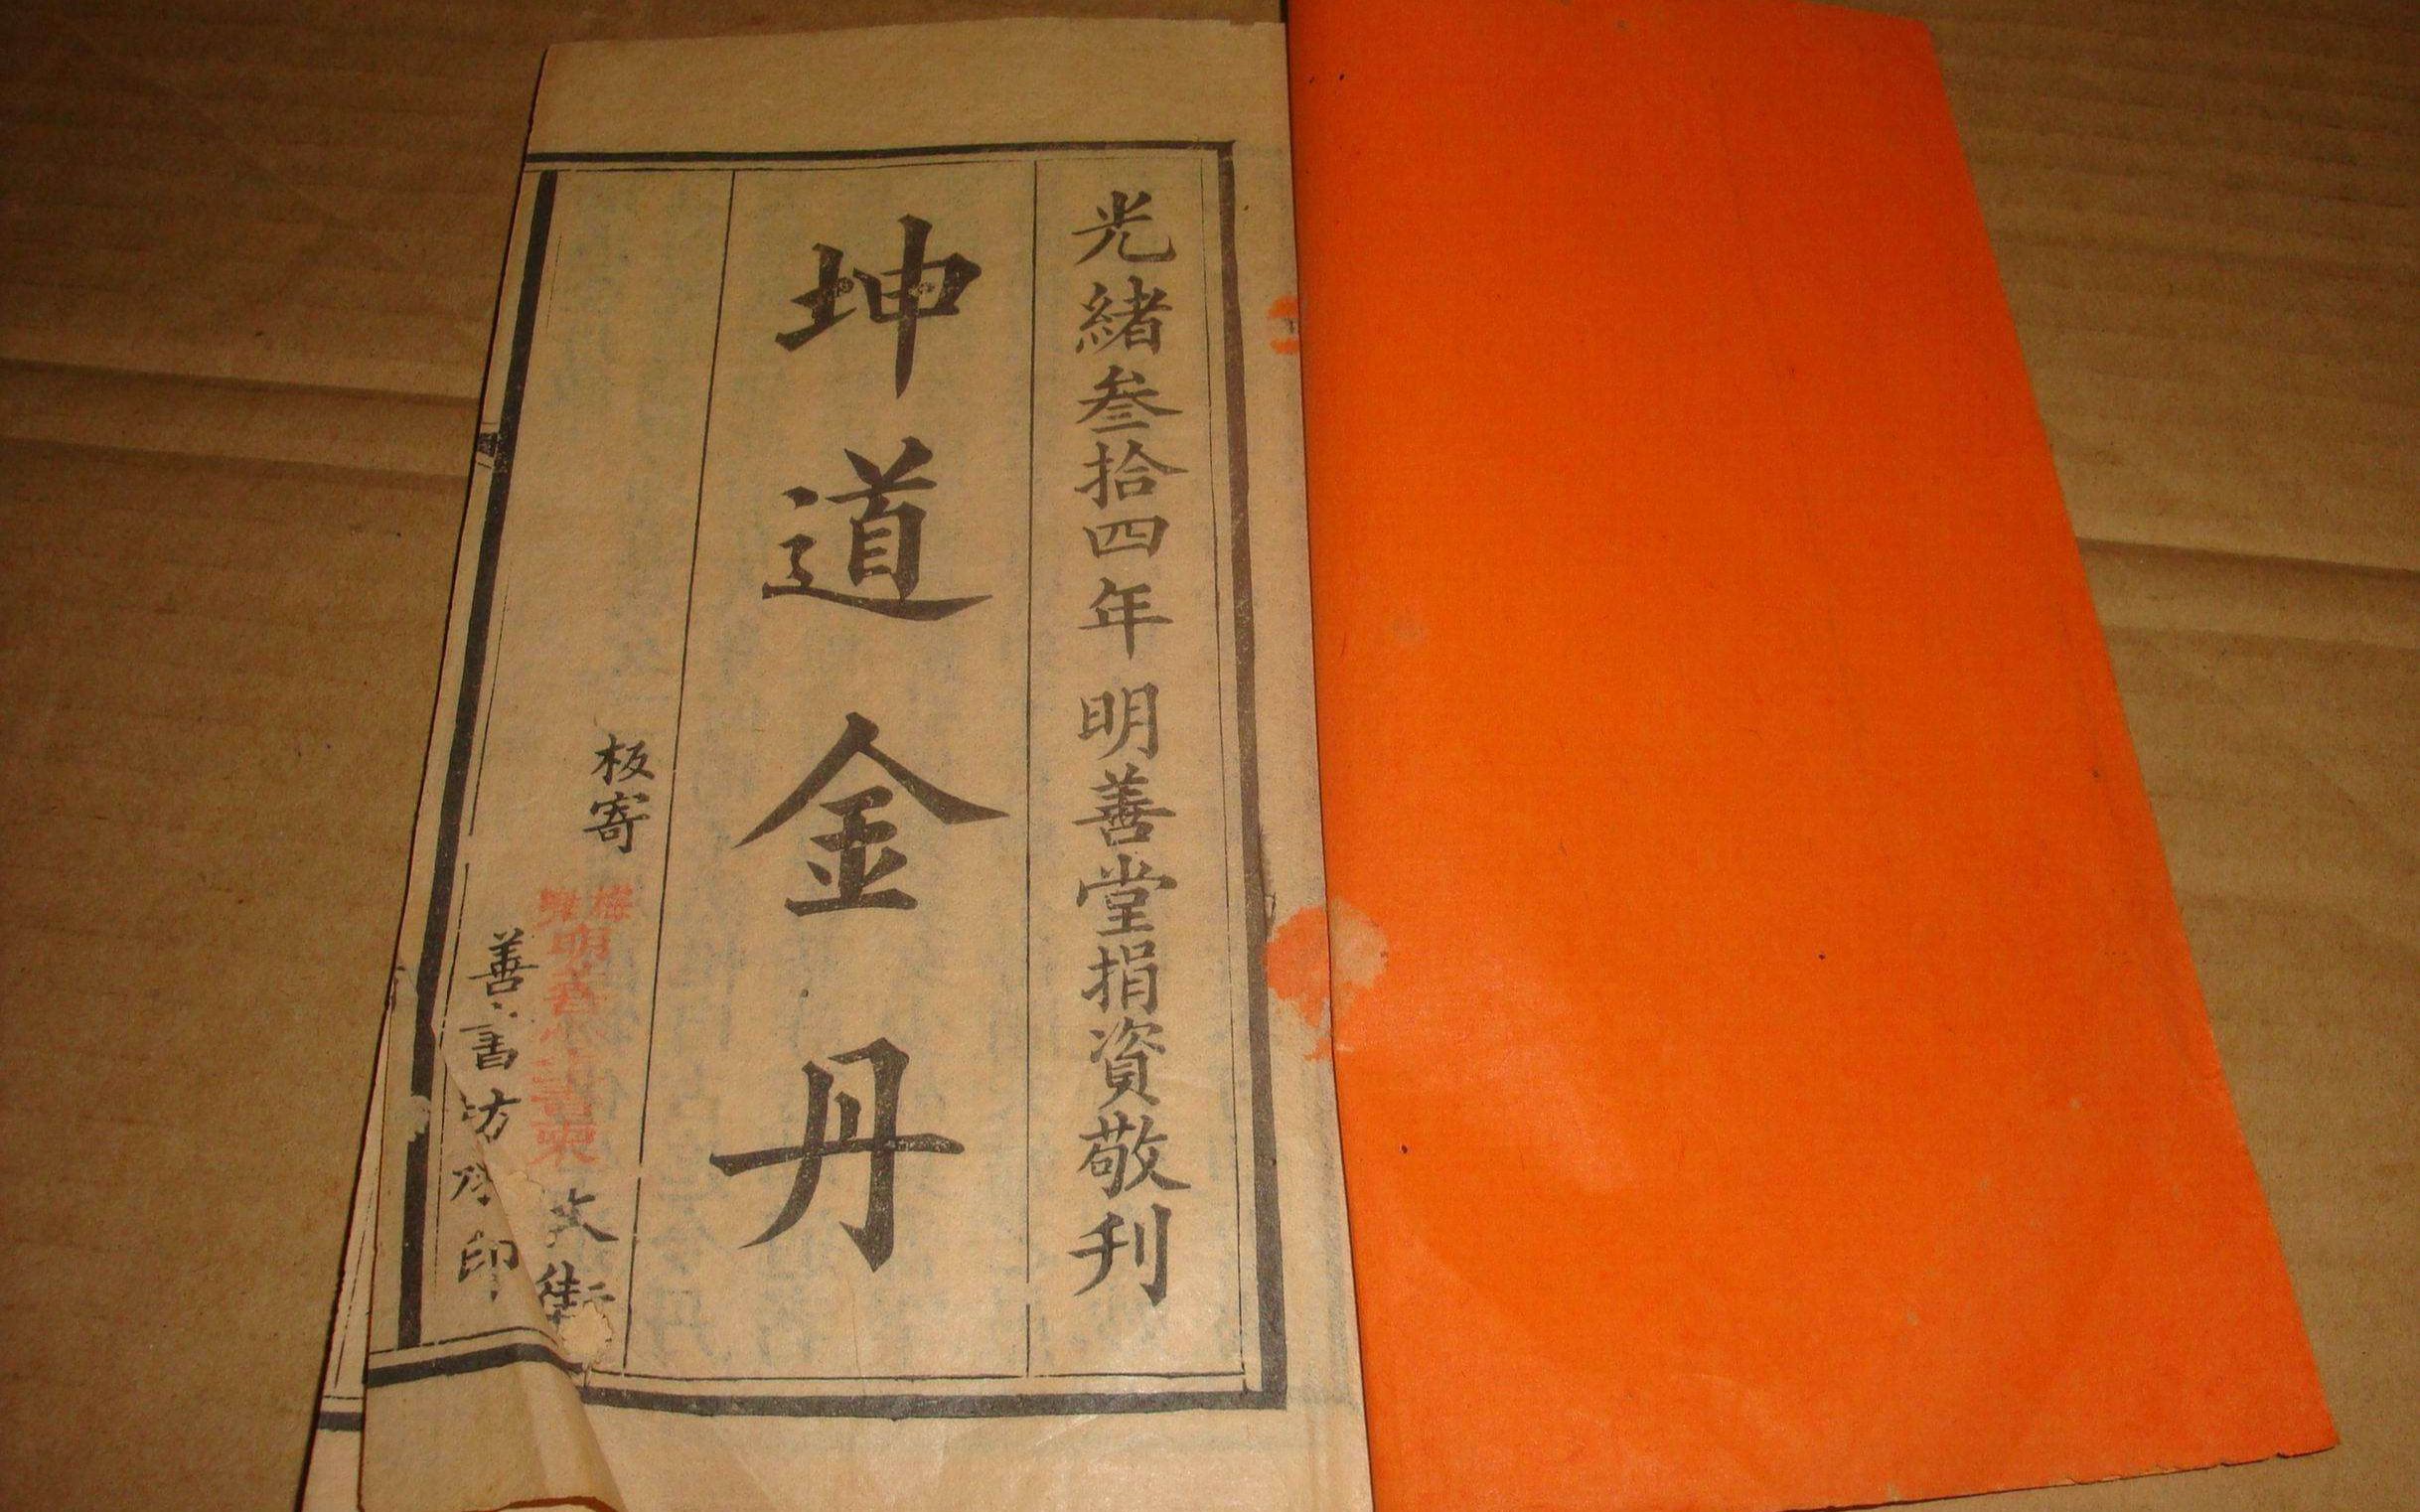 光緒叁拾四年 明善堂捐資敬刋
坤道金丹
板寄 文街
善書坊 印